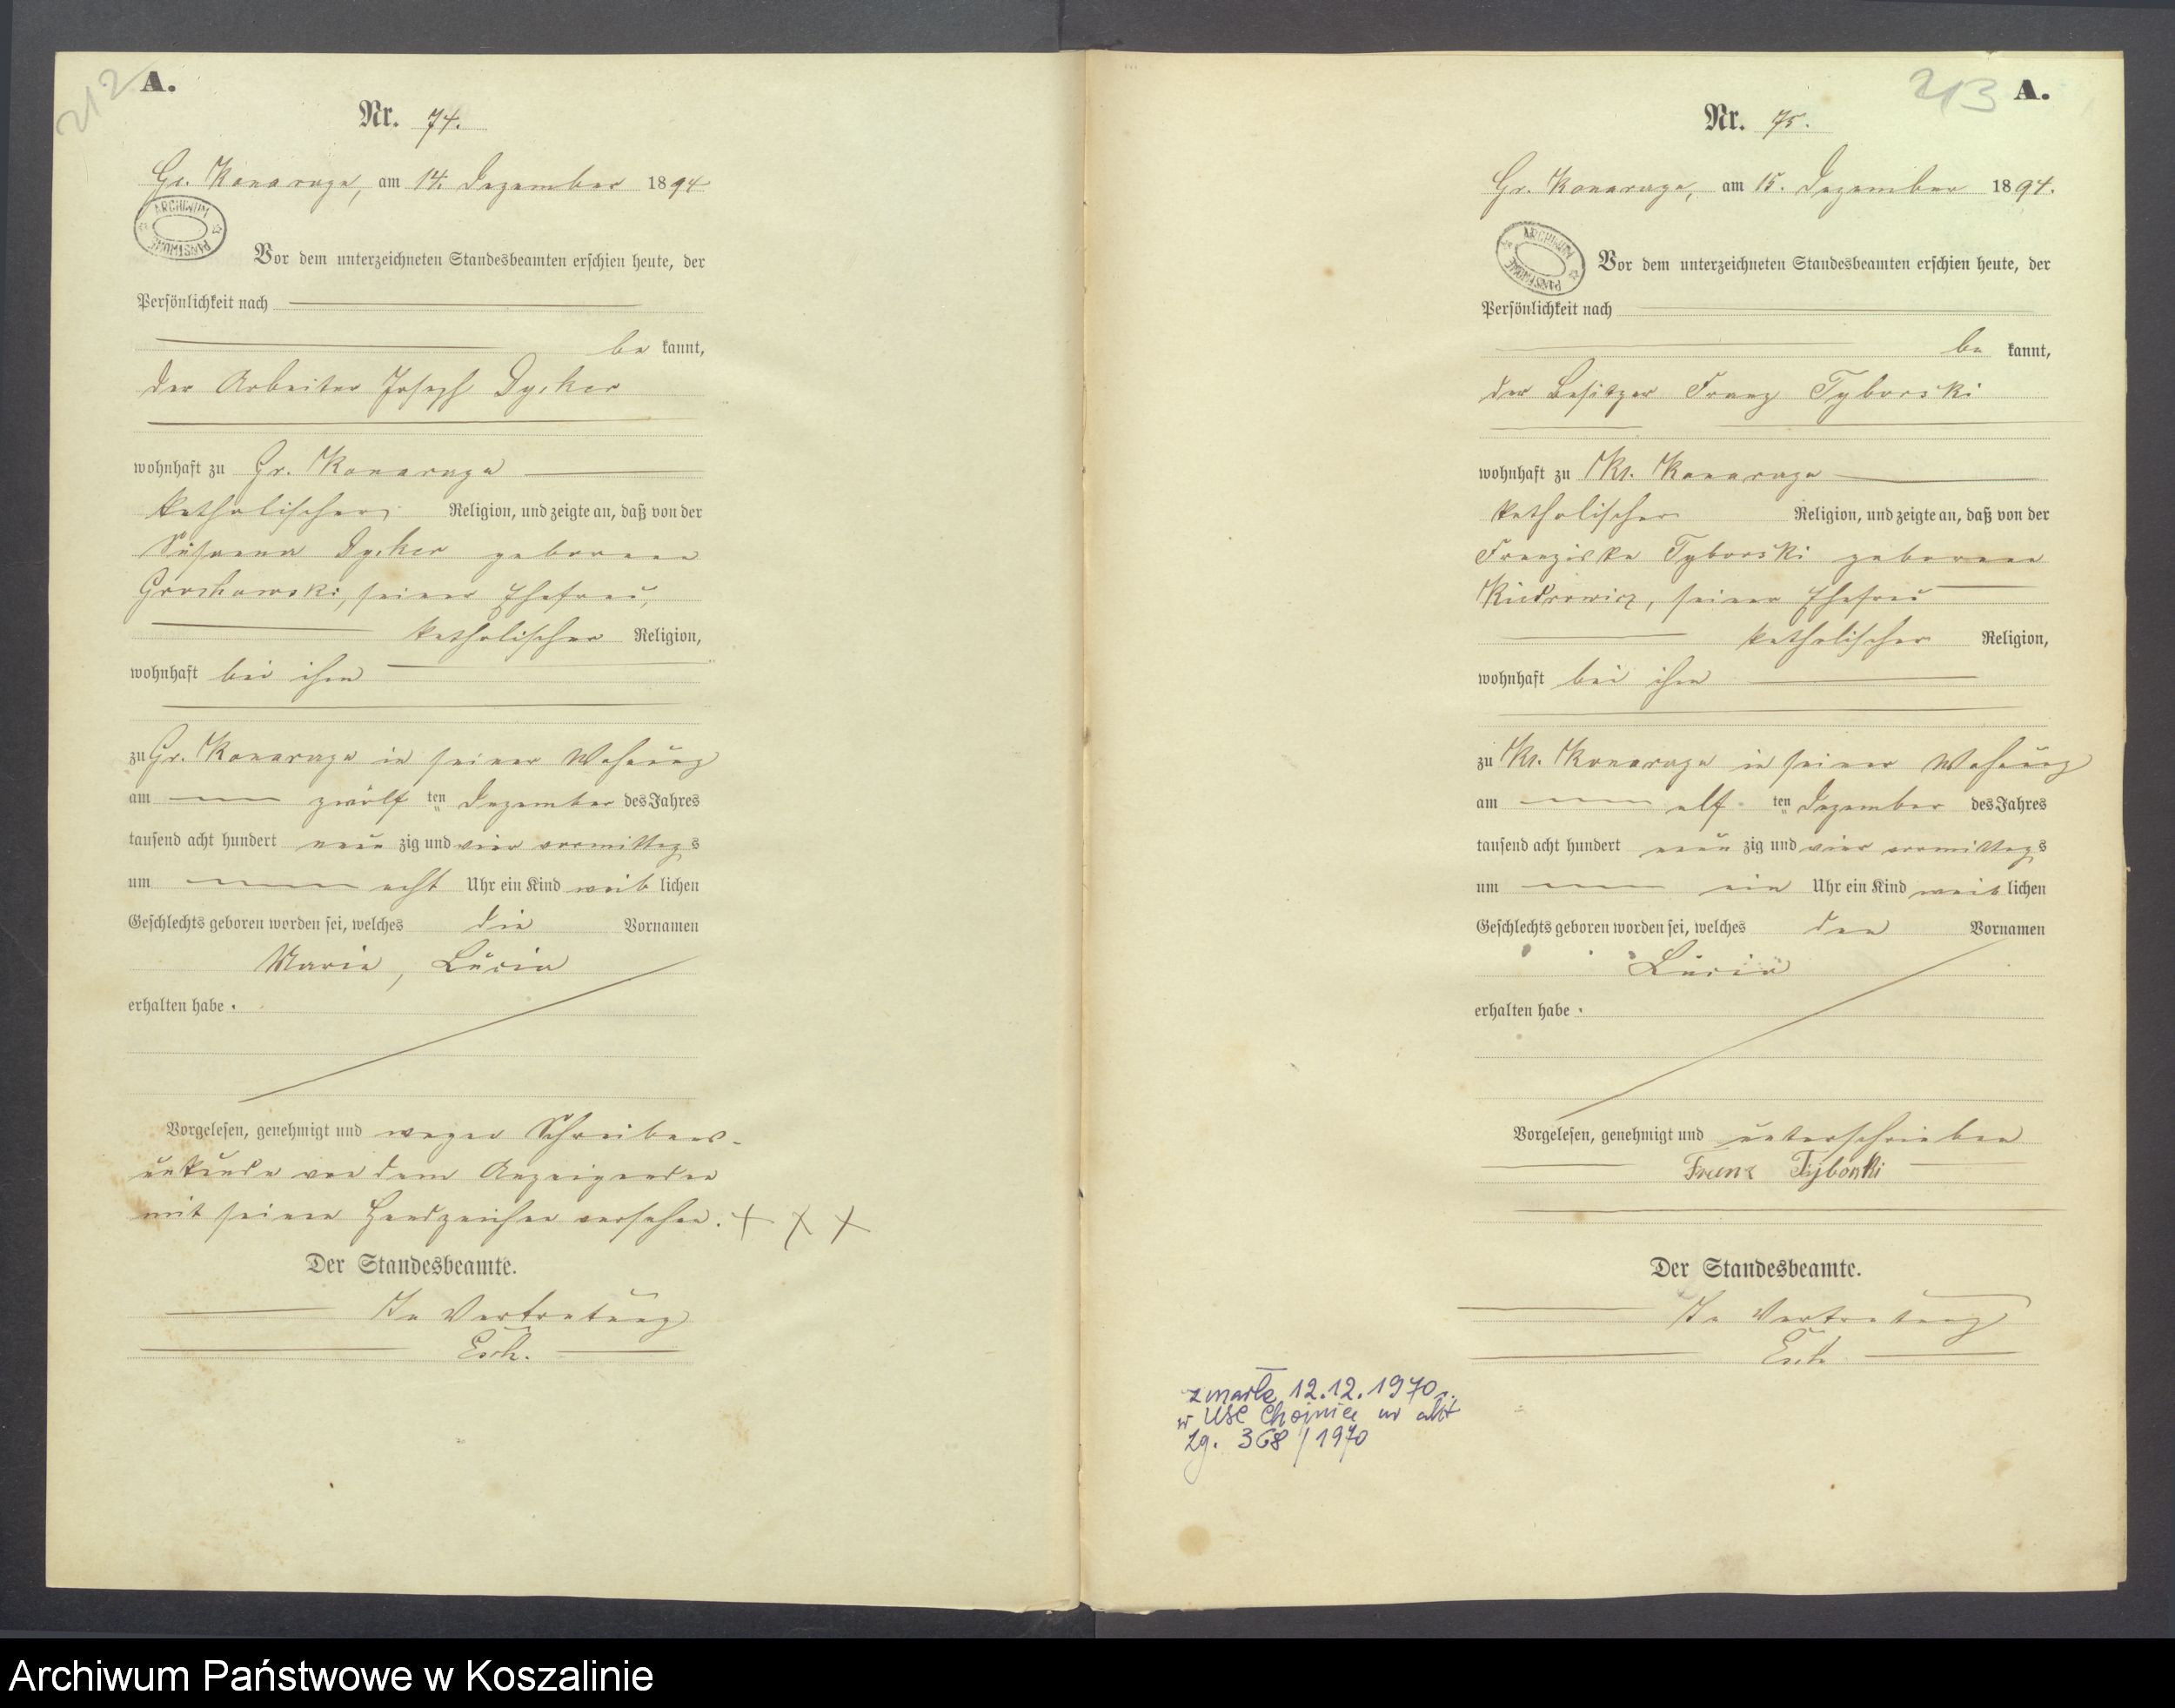 212
A.
Nr. 74.
Gr. Konarzyn, am 14. Dezember 1894
ARCHIWUM PAŃSTWOWE
Vor dem unterzeichneten Standesbeamten erschien heute, der
Persönlichkeit nach
be kannt,
der Arbeiter Joseph
wohnhaft zu Gr. Konarzyn
katholischer Religion, und zeigte an, daß von der
Susanna geborenen
seiner Ehefrau,
katholischer Religion,
wohnhaft bei ihm
zu Gr. Konarzyn in seiner Wohnung
am zwölf ten Dezember des Jahres
tausend acht hundert neun zig und vier vormittags
um acht Uhr ein Kind weib lichen
Geschlechts geboren worden sei, welches die Vornamen
Maria, Lucia
erhalten habe.
Vorgelesen, genehmigt und wegen Schreibens-
unkunde von dem Anzeigenden
mit seinen Handzeichen versehen. + + +
Der Standesbeamte.
In Vertretung
Esch.
213
A.
Nr. 75.
Gr. Konarzyn, am 15. Dezember 1894.
ARCHIWUM PAŃSTWOWE
Vor dem unterzeichneten Standesbeamten erschien heute, der
Persönlichkeit nach
be kannt,
der Besitzer Franz Tyborski
wohnhaft zu Kl. Konarzyn
katholischer Religion, und zeigte an, daß von der
Franziska Tyborski geborenen
seiner Ehefrau
katholischer Religion,
wohnhaft bei ihm
zu Kl. Konarzyn in seiner Wohnung
am elf ten Dezember des Jahres
tausend acht hundert neun zig und vier vormittags
um ein Uhr ein Kind weib lichen
Geschlechts geboren worden sei, welches den Vornamen
Lucia
erhalten habe.
Vorgelesen, genehmigt und unterschrieben
Franz Tyborski
Der Standesbeamte.
In Vertretung
Esch
zmarła 12.12.1970 r.
w USC Chojnice nr akt
zg. 368/1970
Archiwum Państwowe w Koszalinie